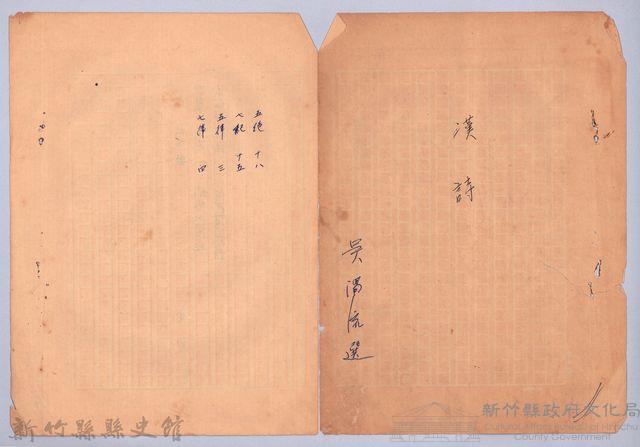 漢詩
吳濁流選
五絕 十八
七絕 十五
五律 三
七律 四
新竹縣縣史館
新竹縣政府文化局
Cultural Affairs Bureau of Hsinchu
County Government